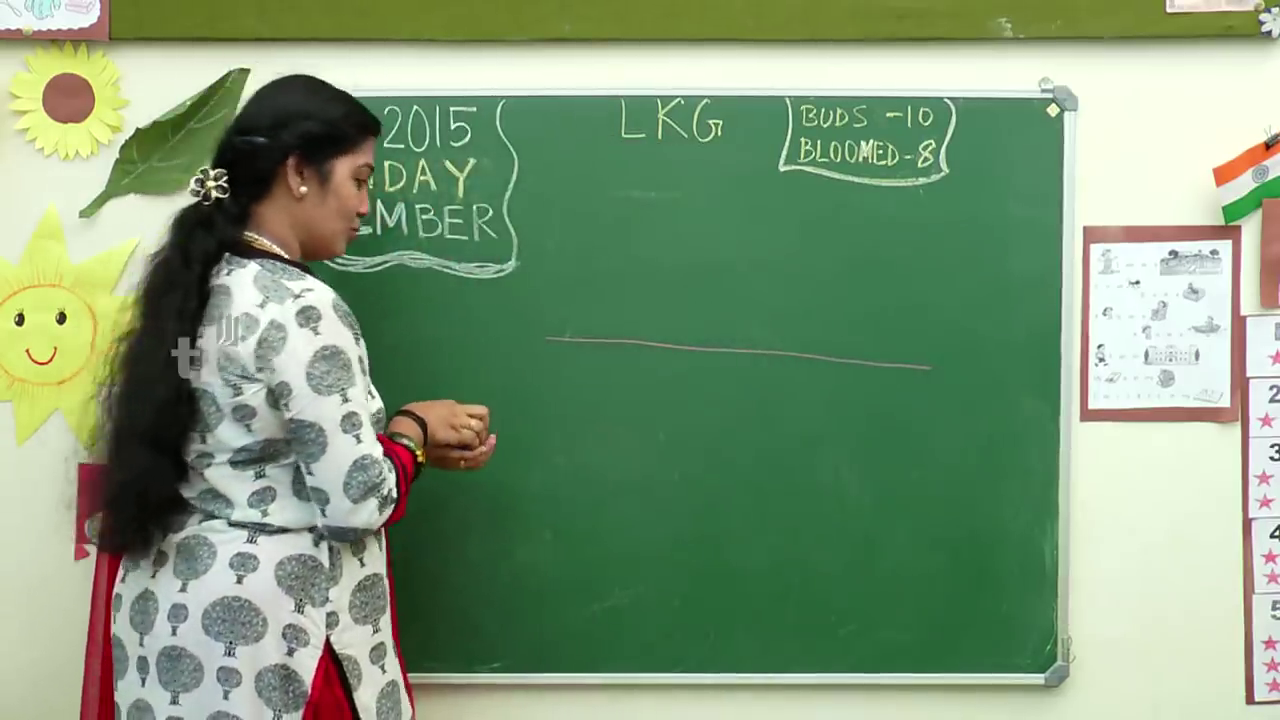 2015
DAY
MBER
LKG
BUDS -10
BLOOMED-8
2
3
4
5